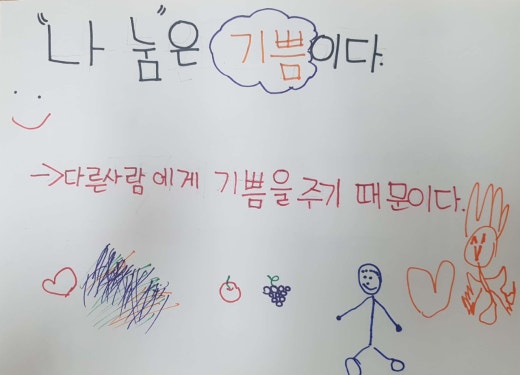 "나 눔"은 기쁨이다.
→다른사람에게 기쁨을 주기 때문이다.